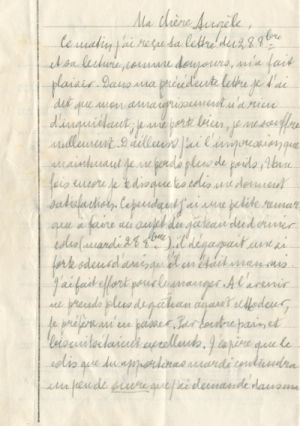 Ma Chère Aurèle,
Ce matin, j'ai reçu ta lettre du 28 8bre
et sa lecture, comme toujours, m'a fait
plaisir. Dans ma précédente lettre je t'ai
dit que mon amaigrissement n'a rien
d'inquiétant; je me porte bien, je ne souffre
nullement. D'ailleurs j'ai l'impression que
maintenant je ne perds plus de poids. Une
fois encore je te dis que tes colis me donnent
satisfaction. Cependant j'ai une petite remar
que à faire au sujet du gâteau du dernier
colis (mardi 28 8bre), il dégageait une si
forte odeur d'anis qu'il en était mauvais
J'ai fait effort pour le manger. A l'avenir
ne prends plus de gâteau ayant odeur,
je préfère m'en passer. Par contre pain, et
biscuits étaient excellents. J'espère que le
colis que tu apporteras mardi contiendra
un peu de sucre que j'ai demandé dans ma